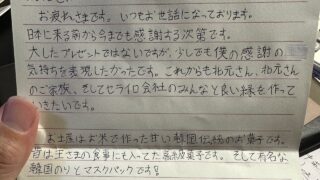 お疲れさまです。いつもお世話になっております。
日本に来る前から今までも感謝する次第です。
大したプレゼントではないですが、少しでも僕の感謝の
気持ちを表現したかったです。これからも北元さん、北元さん
のご家族、そしてセライロ会社のみんなと良い縁を作って
いきたいです。
お土産はお米で作った甘い韓国伝統のお菓子です。
昔は王さまの食事にも入ってた高級菓子です。そして有名な
韓国のりとマスクパックです!